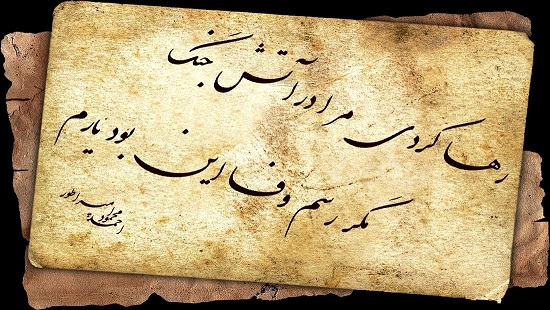 رها کردی مرا در آتش جنگ
مگر رسم وفا این بود یارم
احمد محمود